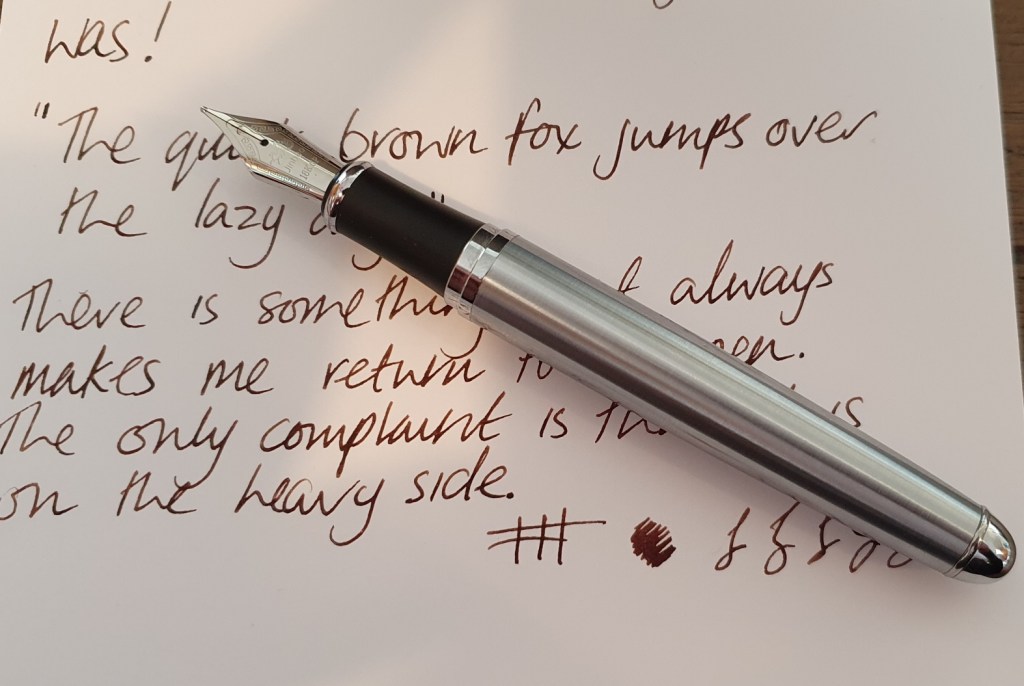 was!
"The quick brown fox jumps over
the lazy
There is something always
makes me return to pen.
The only complaint is is
on the heavy side.